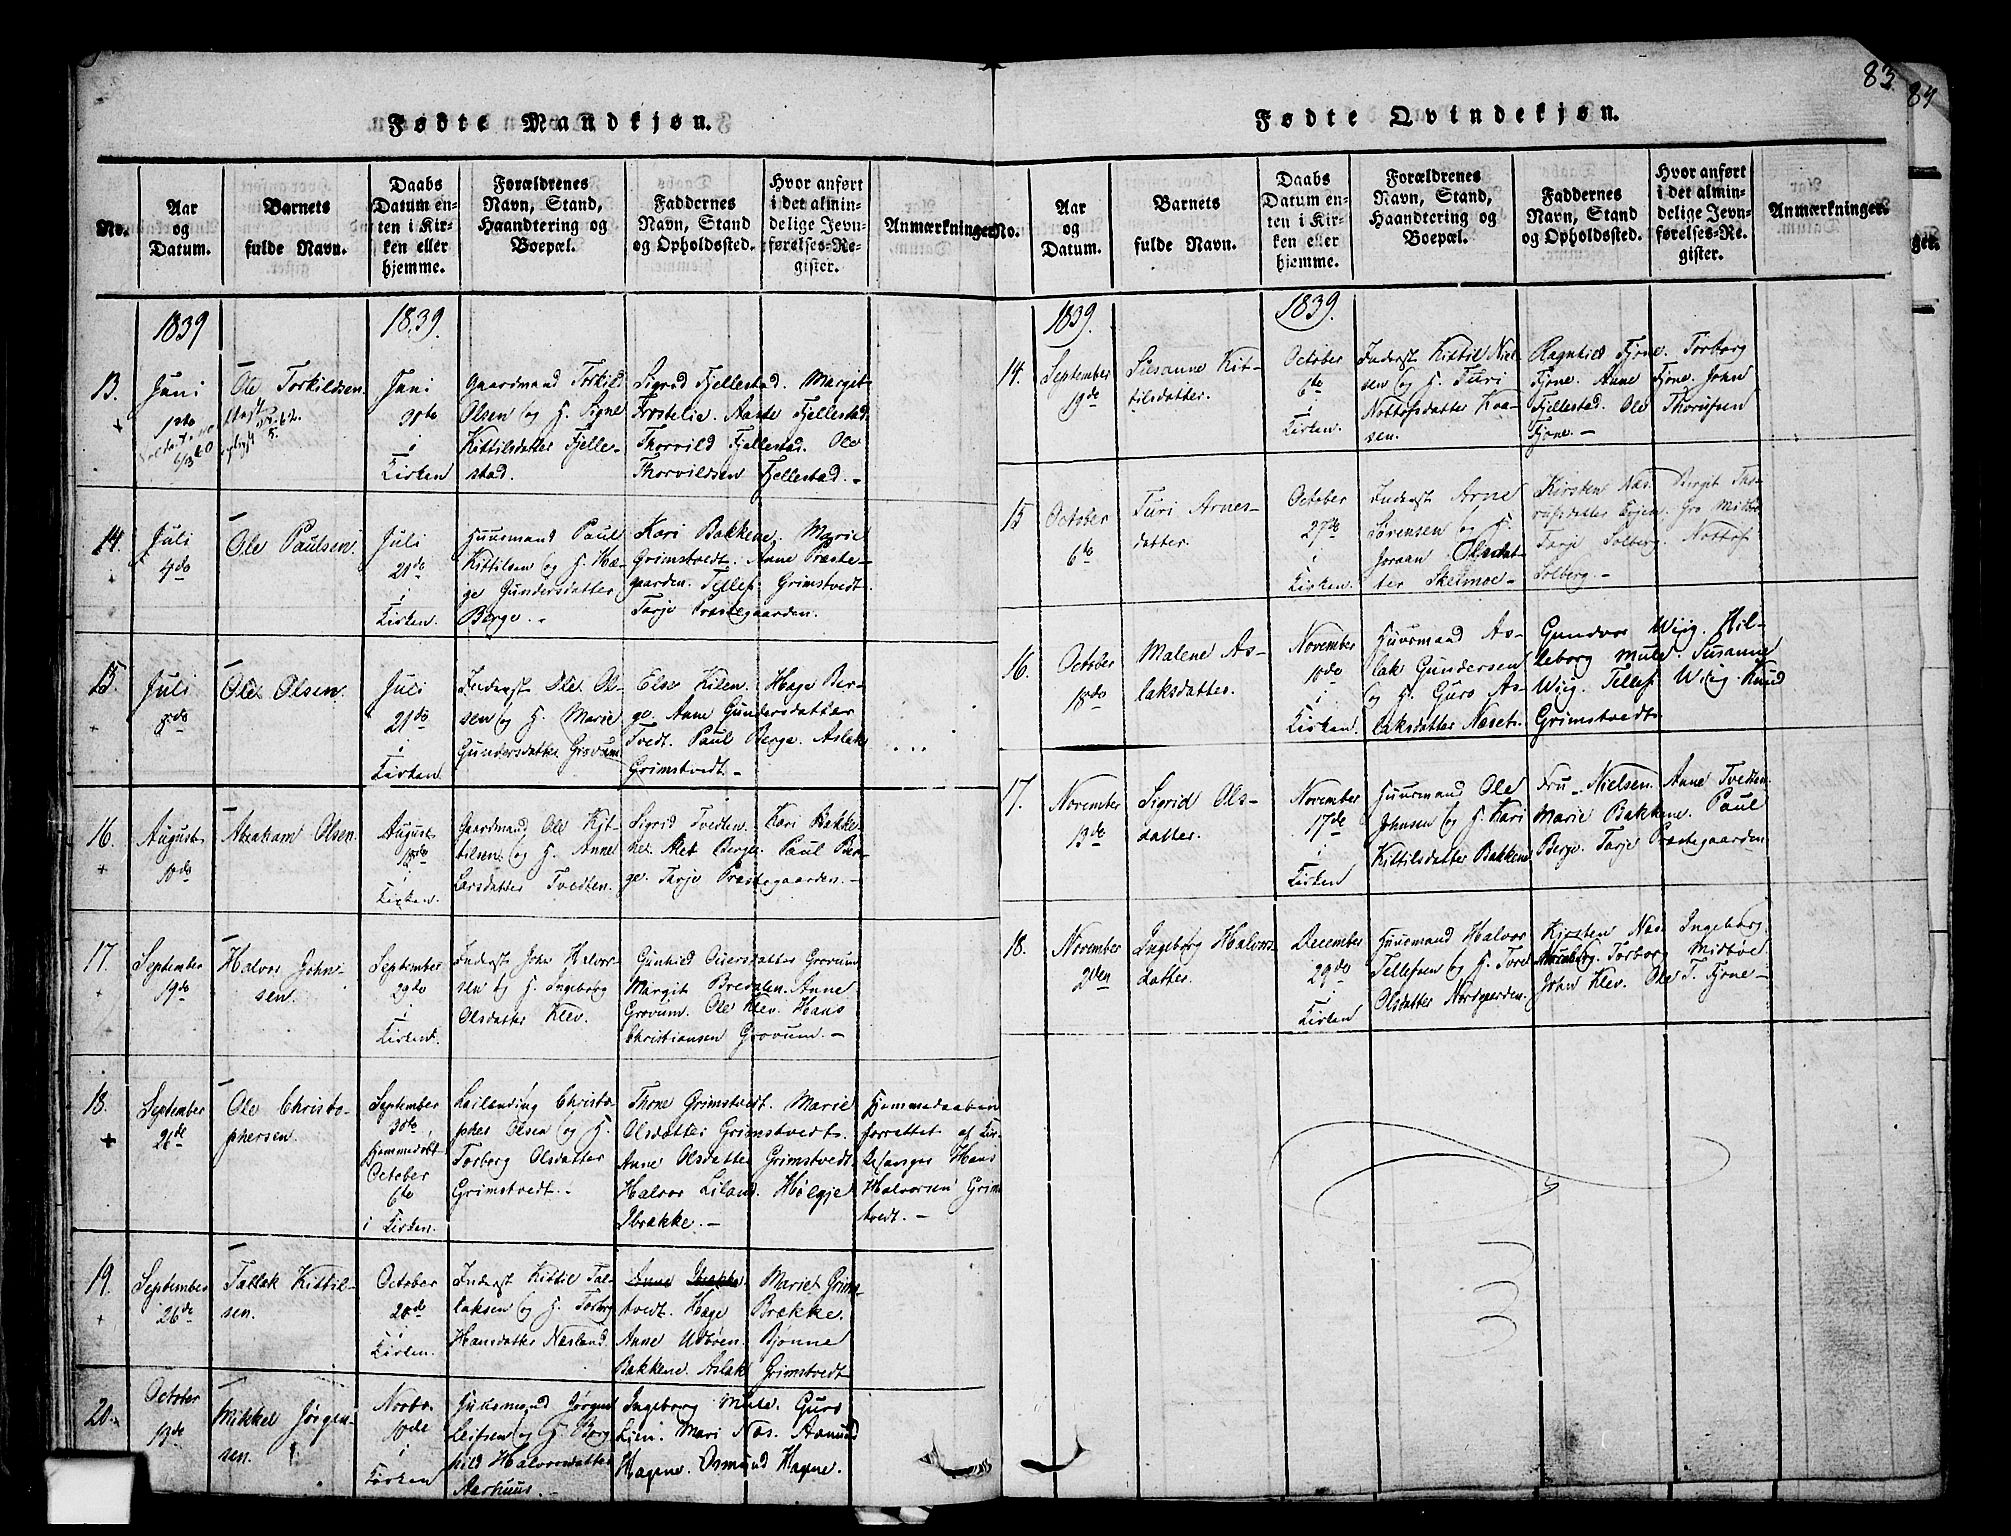 83.
84
Fødte Mandkjøn.
No.
Aar
og
Datum.
Barnets
fulde Navn.
Daabs
Datum en-
ten i Kir-
ken eller
hjemme.
Forældrenes
Navn, Stand,
Haandtering og
Boepæl.
Faddernes
Navn, Stand
og Opholdssted.
Hvor anført
i det almin-
delige Jevn-
førelses-Re-
gister.
Anmærkninger.
1839
1839.
13.
Juni
1ste
Ole Torkildsen
Juni
30te
i
Kirken
Gaardmand Torkild
Olsen og H. Signe
Kittilsdatter Fjelle-
stad.
Sigrid Fjellestad. Margit
Frostelie. Aaste Fjellestad
Thorvild Fjellestad. Ole
Thorvildsen Fjellestad.-
14.
Juli
4de
Ole Paulsen.
Juli
21de
i
Kirken.
Huusmand Paul
Kittilsen og H. Hæ-
ge Gundersdatter
Berge.-
Kari Bakkene. Marie
Grimstvedt. Anne Præste-
gaarden. Tellef Grimstvedt
Tarje Præstegaarden.
15.
Juli
8de
Ole Olsen.
Juli
21de
i
Kirken
Inderst Ole Ol-
sen og H. Marie
Gundersdatter Grovum
Else Kilen. Hæge Ber-
ge. Anne Gundersdatter
Tvedt. Paul Berge. Aslak
Grimstvedt-
16.
August
10de
Abraham Olsen
August
18de
i
Kirken.
Gaardmand Ole Kit-
tilsen og H. Anne
Larsdatter Tvedten.
Sigrid Tvedten. Kari Bakke-
ne. Alet Berge. Paul Ber-
ge. Tarje Præstegaarden.-
17.
September
19de
Halvor John-
sen.
September
29de
i
Kirken.
Inderst John Halvor-
sen og H. Ingeborg
Olsdatter Klev.
Gunhild Olersdatter Grovum
Margit Bredalen. Anne
Grovum. Ole Klev. Hans
Christiansen Grovum.-
18.
September
26de
Ole Christo-
phersen.
September
30te
Hjemmedøbt
October
6te
i Kirken.
Leilending Christo-
pher Olsen og H.
Torborg Olsdatter
Grimstvedt.-
Thone Grimstvedt. Marie
Olsdatter Grimstvedt.
Anne Olsdatter Grimstvedt.
Halvor Liland. Hølgje
Ibrekke.-
Hjemmedaaben
forrettet af Kir-
kesanger Hans
Halvorsen Grim-
stvedt.-
19.
September
26de
Tallak Kittil-
sen.
October
20de
i
Kirken.
Inderst Kittil Tal-
laksen og H. Torborg
Hansdatter Næsland.
Anne Ibrække Mariet Grim-
stvedt. Hæge Brække.
Anne Udbøen. Bjønne
Bakkene. Aslak Grimstvedt
20.
October
19de
Mikkel Jørgen-
sen.
Novbr.
10de
i
Kirken
Huusmand Jørgen
Leifsen og H. Borg-
hild Halvorsdatter
Aarhuus.-
Ingeborg Mule. Guro
Lien. Mari Næs. Aamund
Hagene. Osmund Hagene.
Fødte Qvindekjøn.
No.
Aar
og
Datum.
Barnets
fulde Navn.
Daabs
Datum en-
ten i Kir-
ken eller
hjemme.
Forældrenes
Navn, Stand,
Haandtering og
Boepæl.
Faddernes
Navn, Stand
og Opholdssted.
Hvor anført
i det almin-
delige Jevn-
førelses-Re-
gister.
Anmærkninger.
1839.
1839.
14.
September
19de
Susanne Kit-
tilsdatter.
October
6te
i
Kirken.
Inderst Kittil Niel-
sen og H. Turi
Nottofsdatter Kaa-
sen.
Ragnhild Fjone. Torborg
Fjone. Anne Fjone. John
Fjellestad. Ole Thorufsen
Fjone.-
15
October
6te
Turi Arnes-
datter.
October
27de
i
Kirken.
Inderst Arne
Sørensen og H.
Joraan Olsdat-
ter Skelmoe-
Kirsten Næs. Birgit Tho-
rufsdatter Gro Midbø
Tarje Solberg. Nottof
Solberg.-
16.
October
18de
Malene As-
laksdatter.
November
10de
i
Kirken.
Huusmand As-
lak Gundersen
og H. Guro As-
laksdatter Næset.
Gundvor Wiig. Hil-
leborg Mule. Susanne
Wiig. Tellef Wiig. Knud
Grimstvedt.
17.
November
13de
Sigrid Ols-
datter.
November
17de
i
Kirken
Huusmand Ole
Johnsen og H. Kari
Kittilsdatter Bakkene
Fru Nielsen. Anne Tvedten.
Marie Bakkene. Paul
Berge. Tarje Præstegaarden
18.
November
2den
Ingeborg Halvors-
datter.
December
29de
i
Kirken
Huusmand Halvor
Tellefsen og H. Tore
Olsdatter Nordgaarden.
Kirsten Næs. Ingeborg
Torborg Midbøe.
John Klev. Ole T. Fjone-